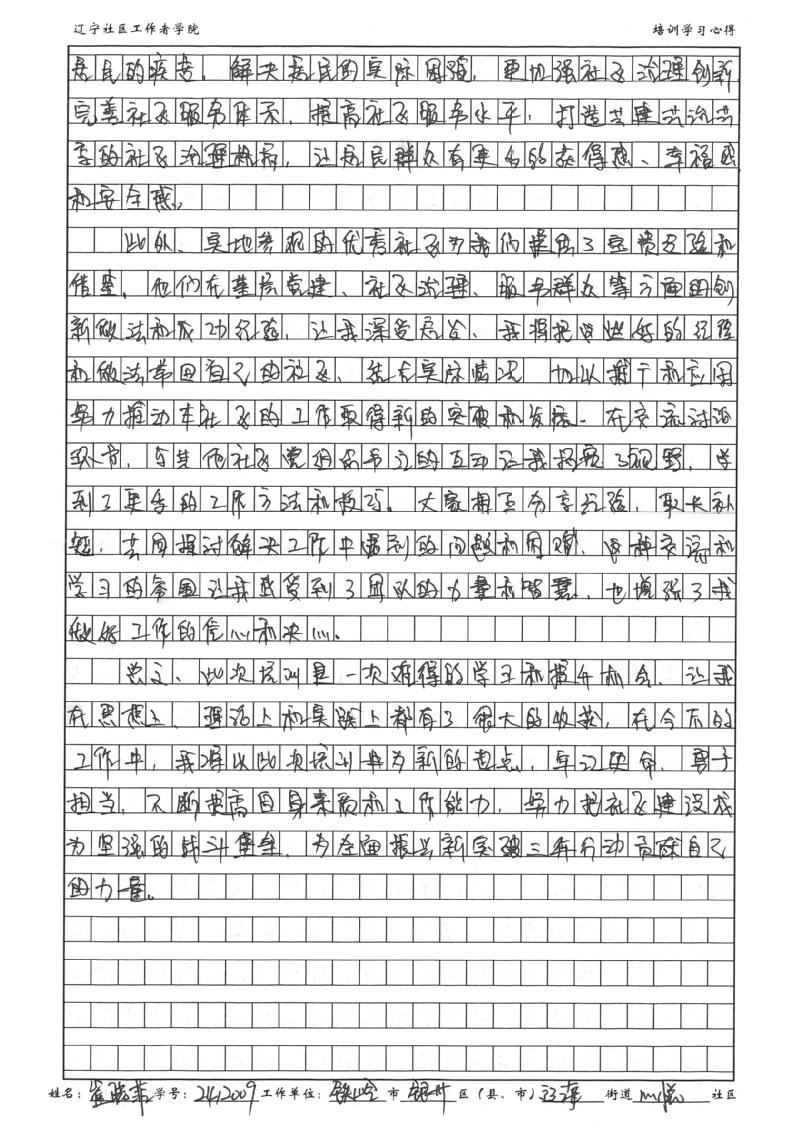 辽宁社区工作者学院 培训学习心得
居民的疾苦，解决居民的实际困难，更加强社区治理创新
完善社区服务体系，提高社区服务水平，打造共建共治共
享的社区治理格局，让居民群众有更多的获得感、幸福感
和安全感。
此外，实地参观的优秀社区为我们提供了宝贵经验和
借鉴，他们在基层党建、社区治理、服务群众等方面的创
新做法和成功经验，让我深受启发、我将把这些好的经验
和做法带回自己的社区、结合实际情况 加以推广和应用
努力推动本社区的工作取得新的突破和发展。在交流讨论
环节，与其他社区党组织书记的互动让我拓宽了视野，学
到了更多的工作方法和技巧。大家相互分享经验，取长补
短，共同探讨解决工作中遇到的问题和困难，这种交流和
学习的氛围让我感受到了团队的力量和智慧，也增强了我
做好工作的信心和决心。
总之、此次培训是一次难得的学习和提升机会，让我
在思想上、理论上和实践上都有了很大的收获，在今后的
工作中，我将以此次培训为新的起点，牢记使命，勇于
担当，不断提高自身素质和工作能力，努力把社区建设成
为坚强的战斗堡垒，为全面振兴新突破三年行动贡献自己
的力量。
姓名： 学号：2412009 工作单位：铁岭 市 银州 区（县、市） 街道 社区